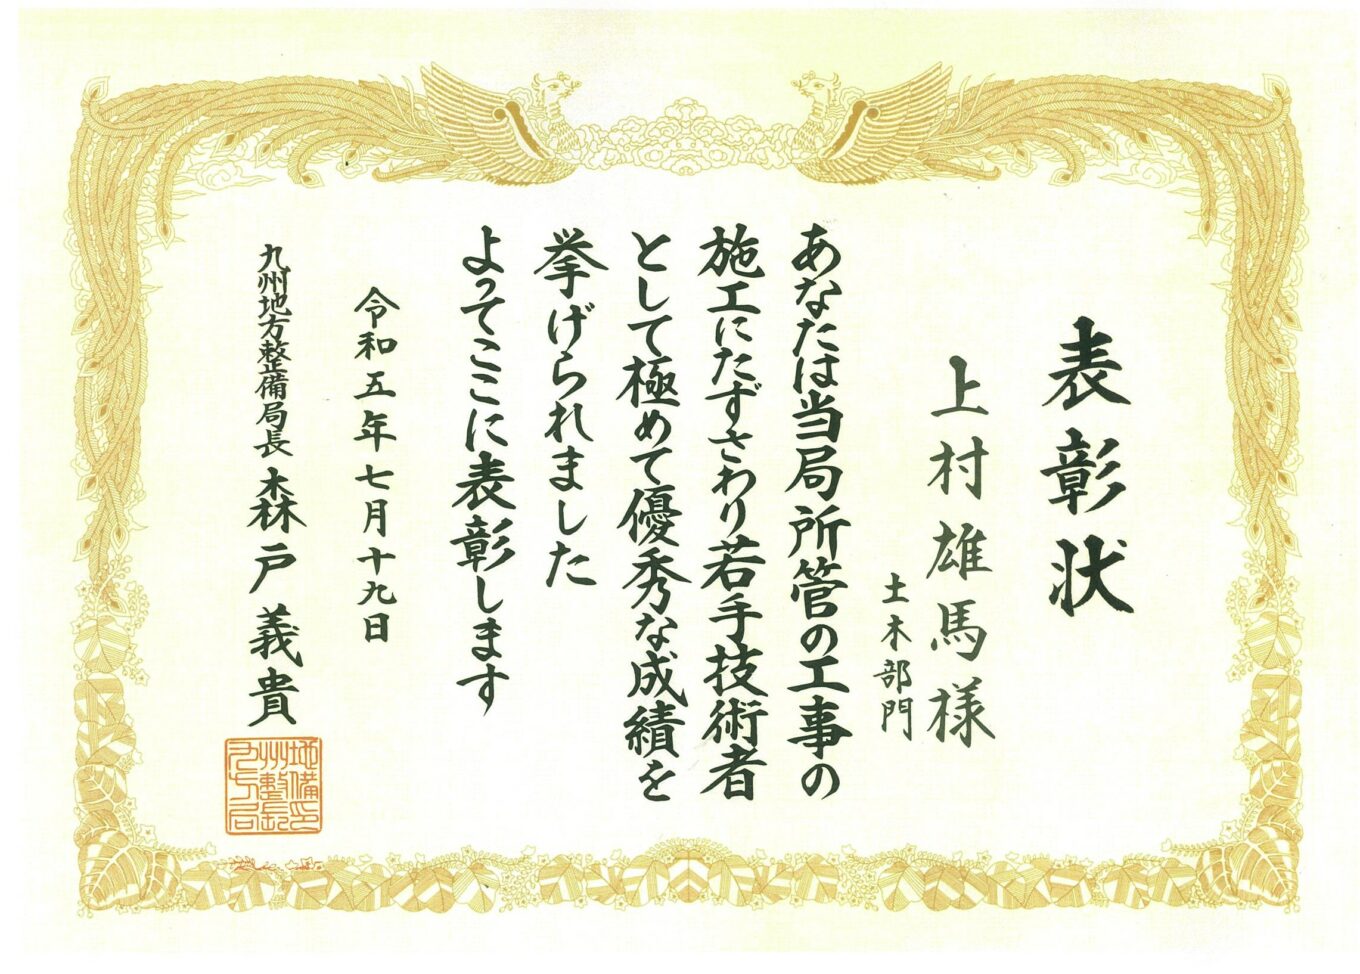 表彰状
上村雄馬様
土木部門
あなたは当局所管の工事の
施工にたずさわり若手技術者
として極めて優秀な成績を
挙げられました
よってここに表彰します
令和五年七月十九日
九州地方整備局長 森戸義貴